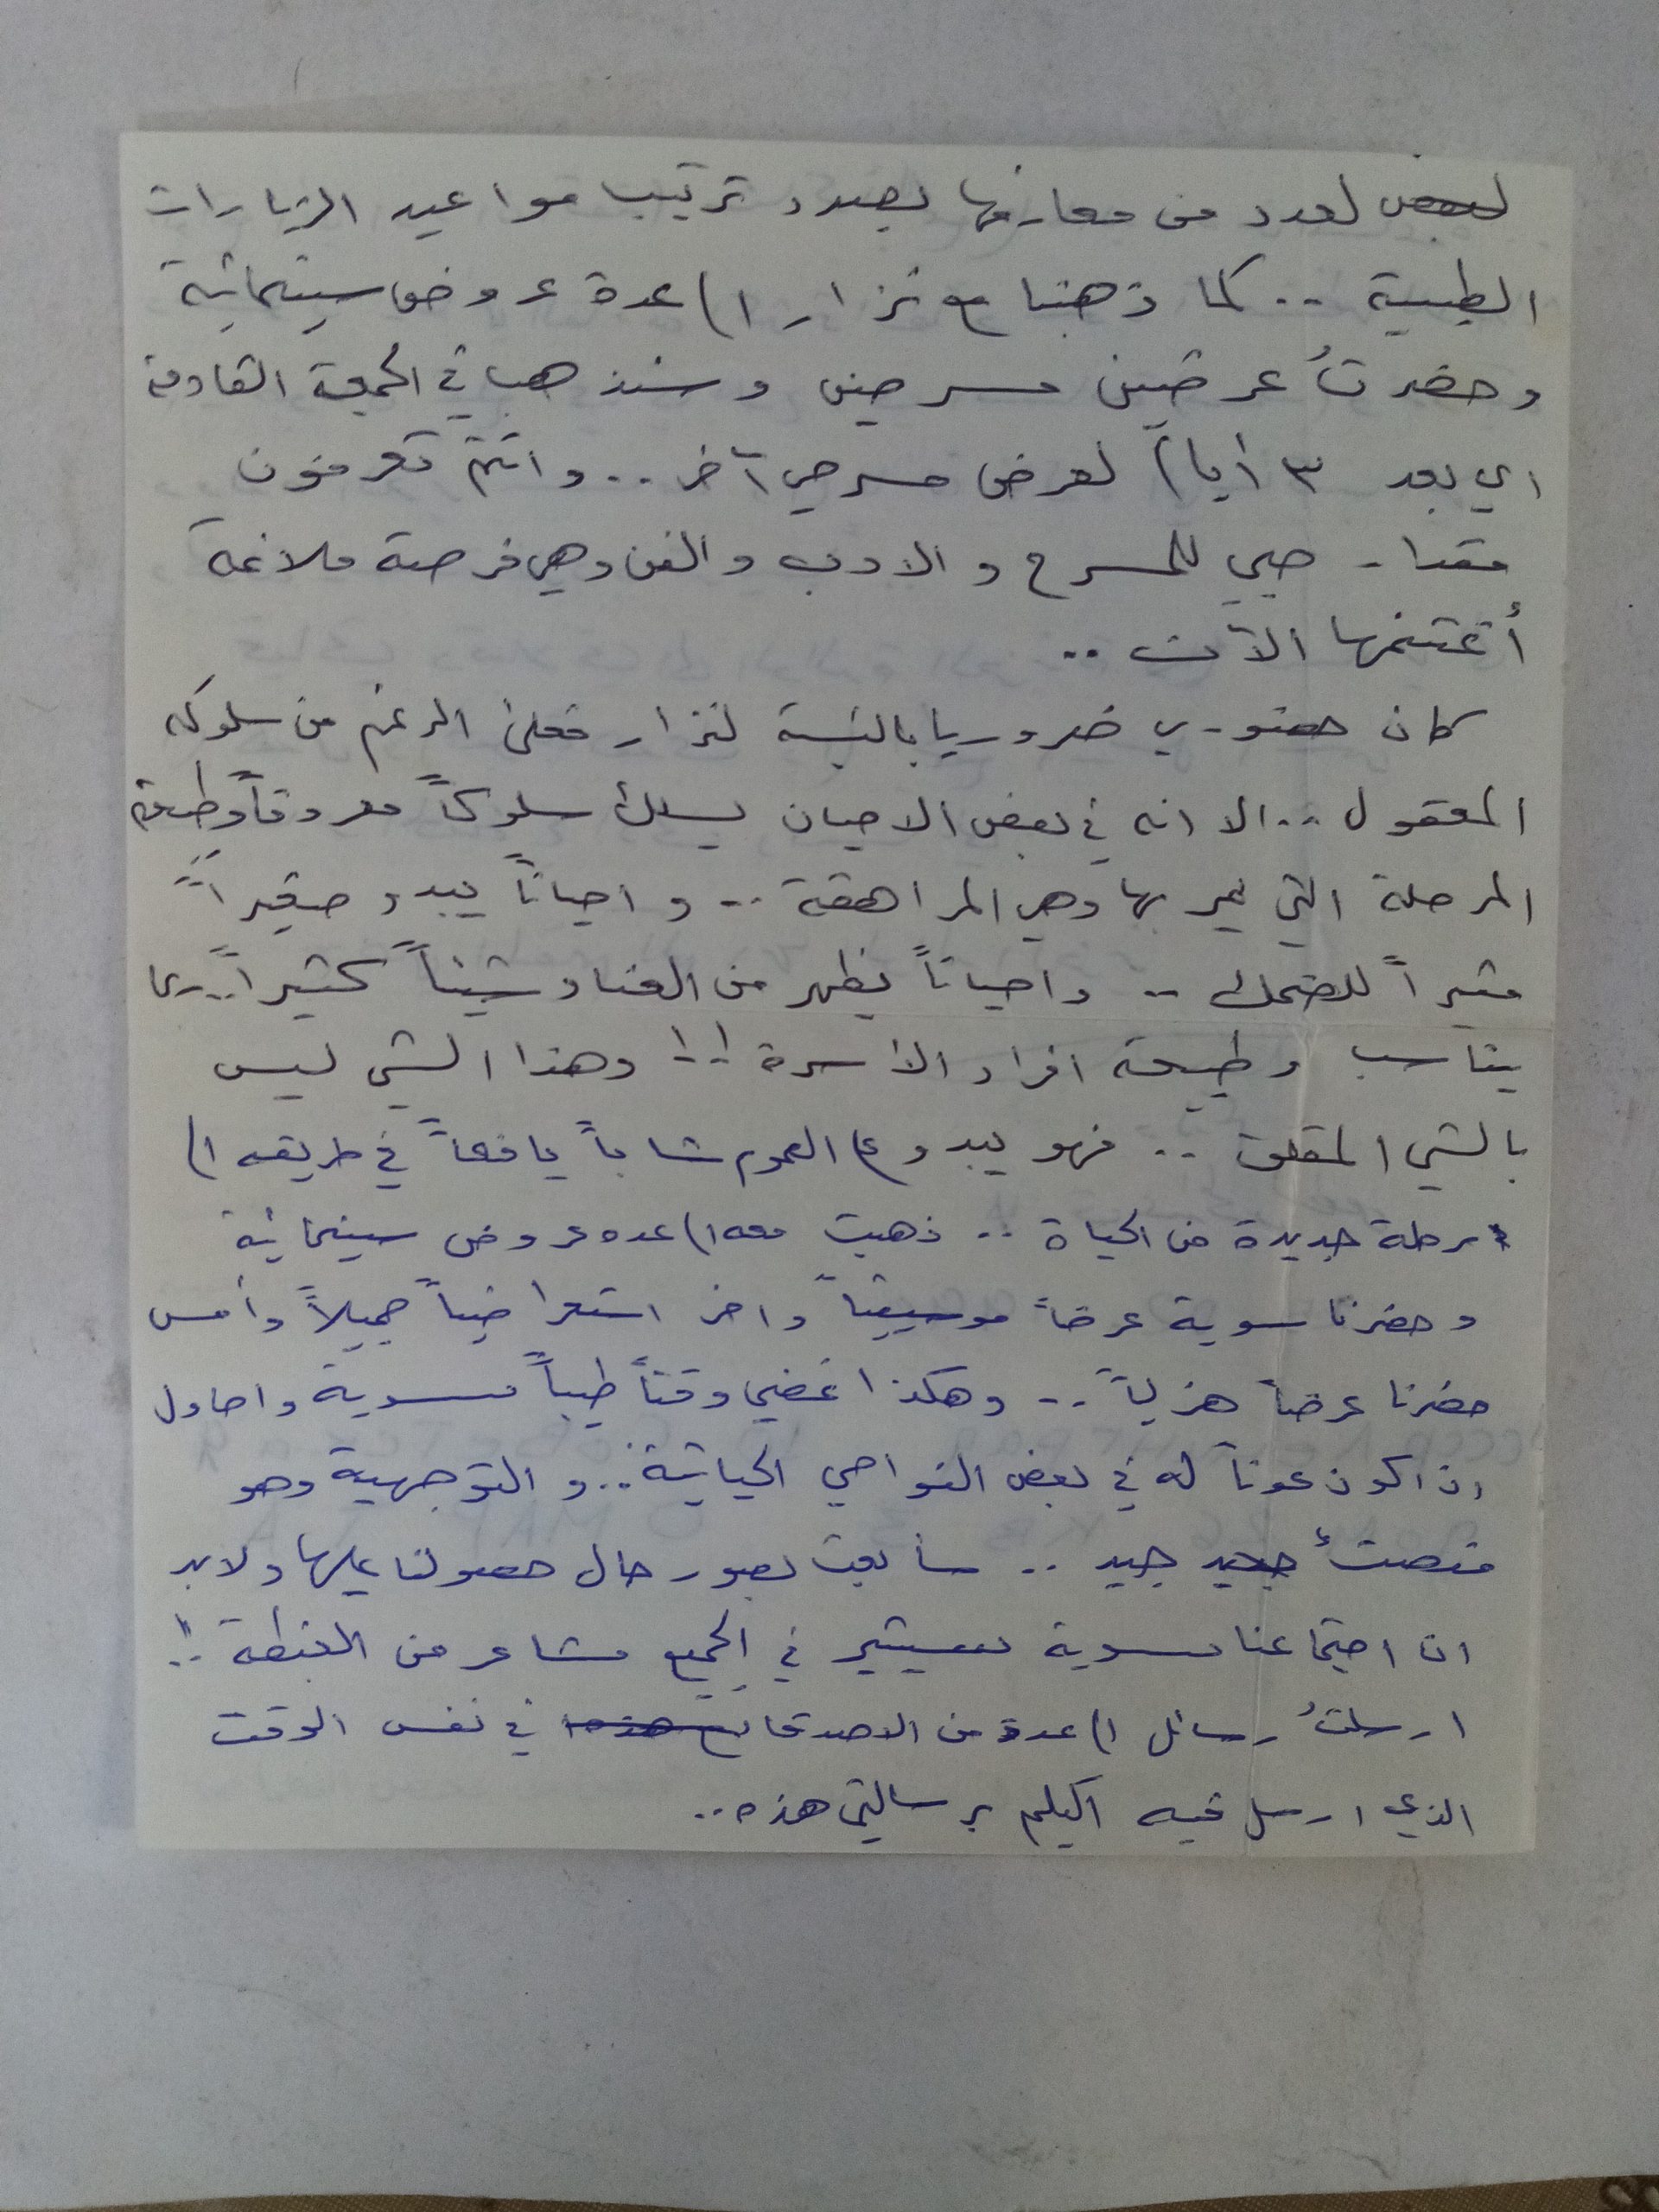 لعدد من معارفها بصدد ترتيب مواعيد الزيارات
الطبية .. كما ذهبنا مع نزار الى عدة عروض سينمائية
وحضرتُ عرضين مسرحين وسنذهب في الجمعة القادمة
اي بعد ٣ أيام لعرض مسرحي آخر .. وانتم تعرفون
مقدار حبي للمسرح والادب والفن وهي فرصة ملائمة
أغتنمها الآن ..
كان حضوري ضروريا بالنسبة لنزار فعلى الرغم من سلوكه
المعقول .. الا انه في بعض الاحيان يسلك سلوكاً معروفاً وطبيعة
المرحلة التي يمر بها وهي المراهقة .. واحياناً يبدو صغيراً ..
مثيراً للضحك .. واحياناً يظهر من العناد شيئاً كثيراً .. بما
يتناسب وطبيعة افراد الأسرة !! وهذا الشي ليس
بالشي المقلق .. فهو يبدو على العموم شاباً يافعاً في طريقه الى
مرحلة جديدة من الحياة .. ذهبت معه الى عده عروض سينمائية
وحضرنا سوية عرضاً موسيقياً واخر استعراضياً جميلاً وأمس
حضرنا عرضاً هزلياً .. وهكذا نمضي وقتاً طيباً سوية واحاول
ان اكون عوناً له في بعض النواحي الحياتية .. والتوجيهية وهو
منصتٌ جيد جيد .. سأبعث بصور حال حصولنا عليها ولابد
ان اجتماعنا سوية سيثير في الجميع مشاعر من الغبطة ..!
ارسلتُ رسائل الى عدة من الاصدقاء في نفس الوقت
الذي ارسل فيه اليكم برسالتي هذه ..